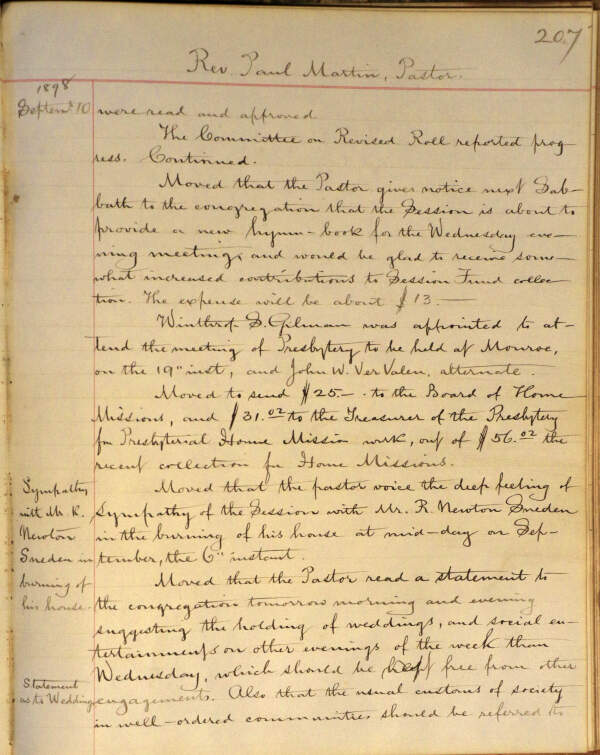 207
Rev. Paul Martin, Pastor.
1898
Septemr. 10 were read and approved
The Committee on Revised Roll reported prog-
ress. Continued.
Moved that the Pastor give notice next Sab-
bath to the congregation that the Session is about to
provide a new hymn-book for the Wednesday eve-
ning meeting, and would be glad to receive some-
what increased contributions to Session Fund collec-
tion. The expense will be about $13.—
Winthrop S. Gilman was appointed to at-
tend the meeting of Presbytery to be held at Monroe,
on the 19" inst, and John W. Ver Valen, alternate.
Moved to send $25— to the Board of Home
Missions, and $31.02 to the Treasurer of the Presbytery
for Presbyterial Home Mission work, out of $56.02 the
recent collection for Home Missions.
Moved that the pastor voice the deep feeling of
sympathy of the Session with Mr. R. Newton Sneden
in the burning of his house at mid-day on Sep-
tember, the 6" instant.
Sympathy
with Mr R.
Newton
Sneden in
burning of
his house.
Moved that the Pastor read a statement to
the congregation tomorrow morning and evening
suggesting the holding of weddings, and social en-
tertainments on other evenings of the week than
Wednesday, which should be kept free from other
engagements. Also that the usual customs of society
in well-ordered communities should be referred to
Statement
as to Wedding